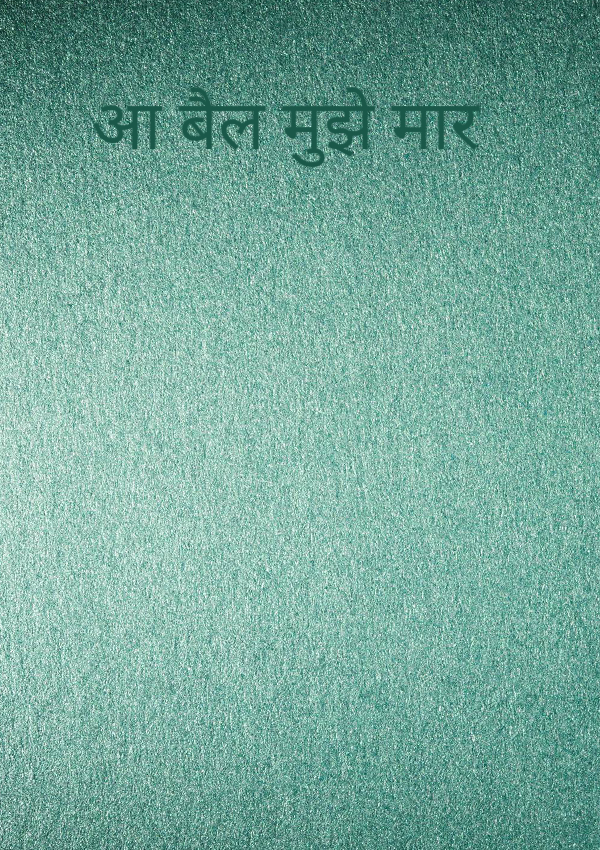 आ बैल मुझे मार